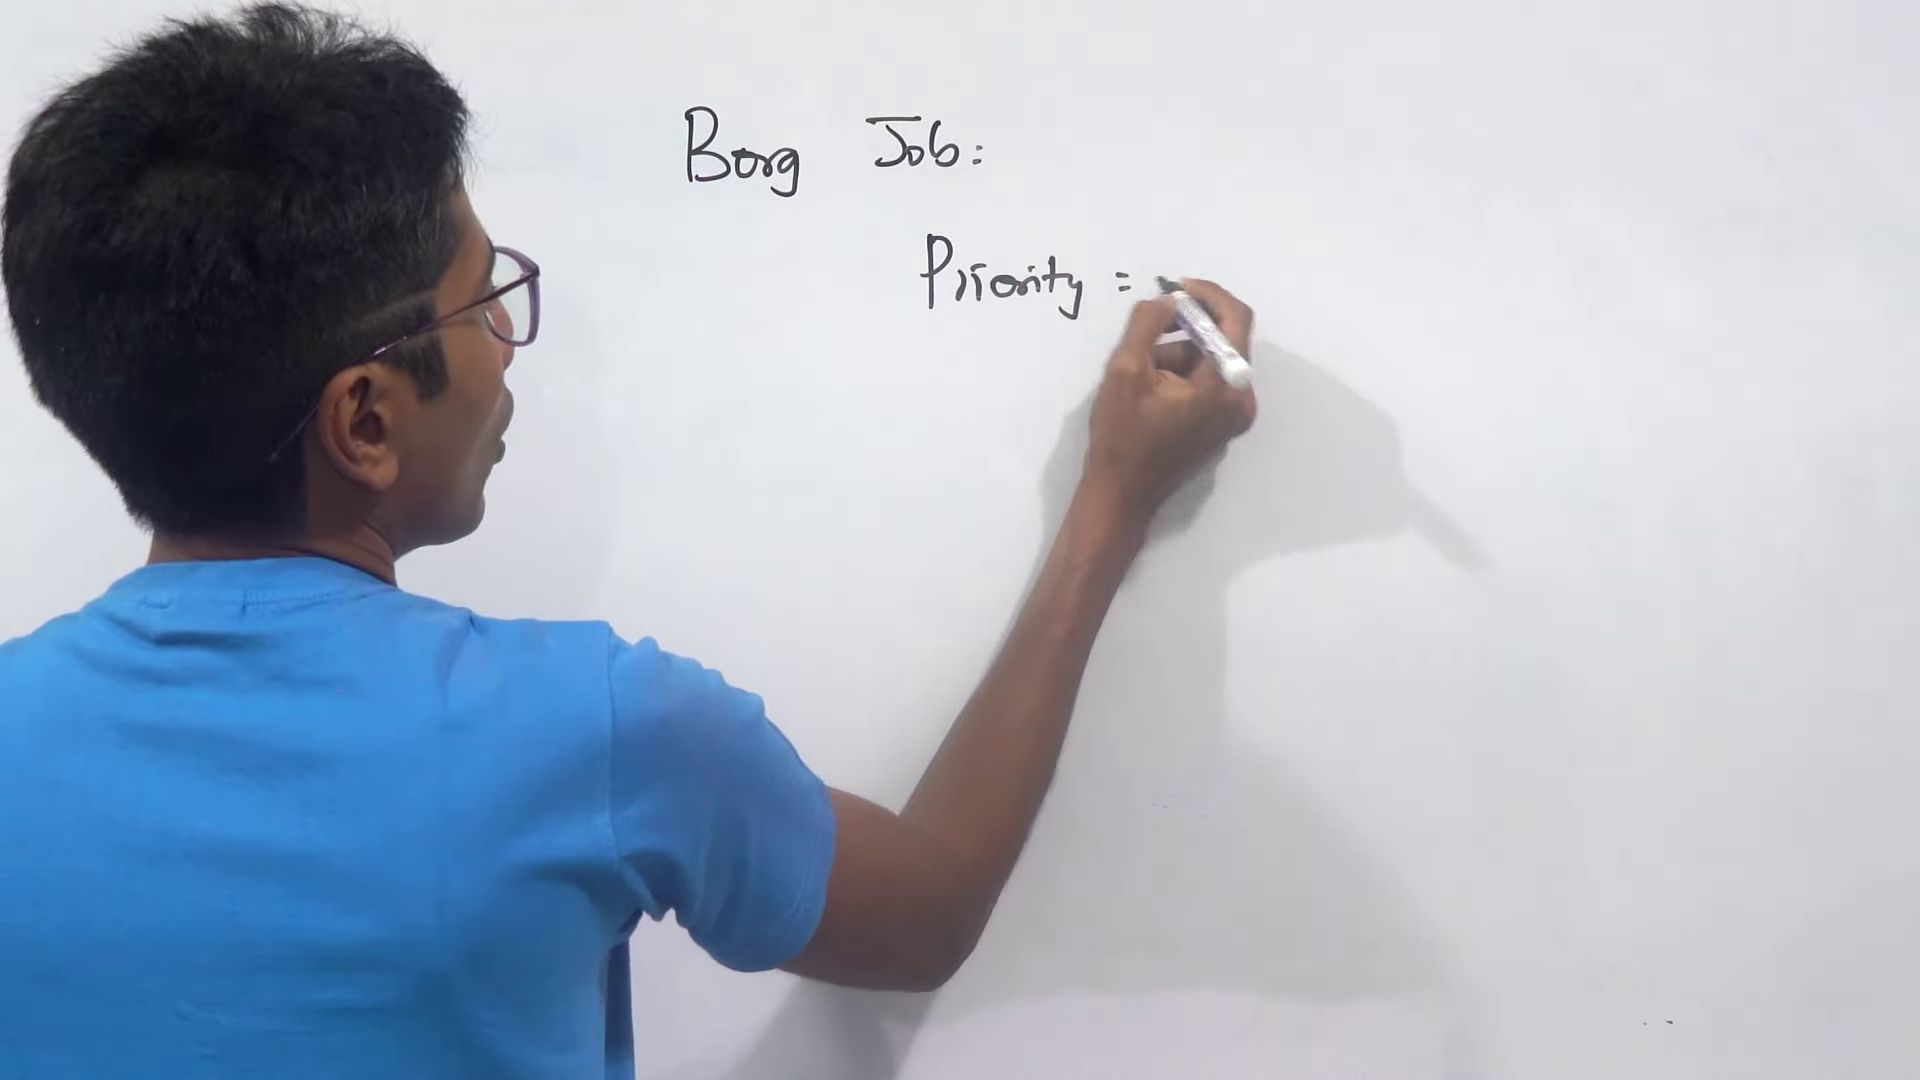 Borg Job:
Priority =